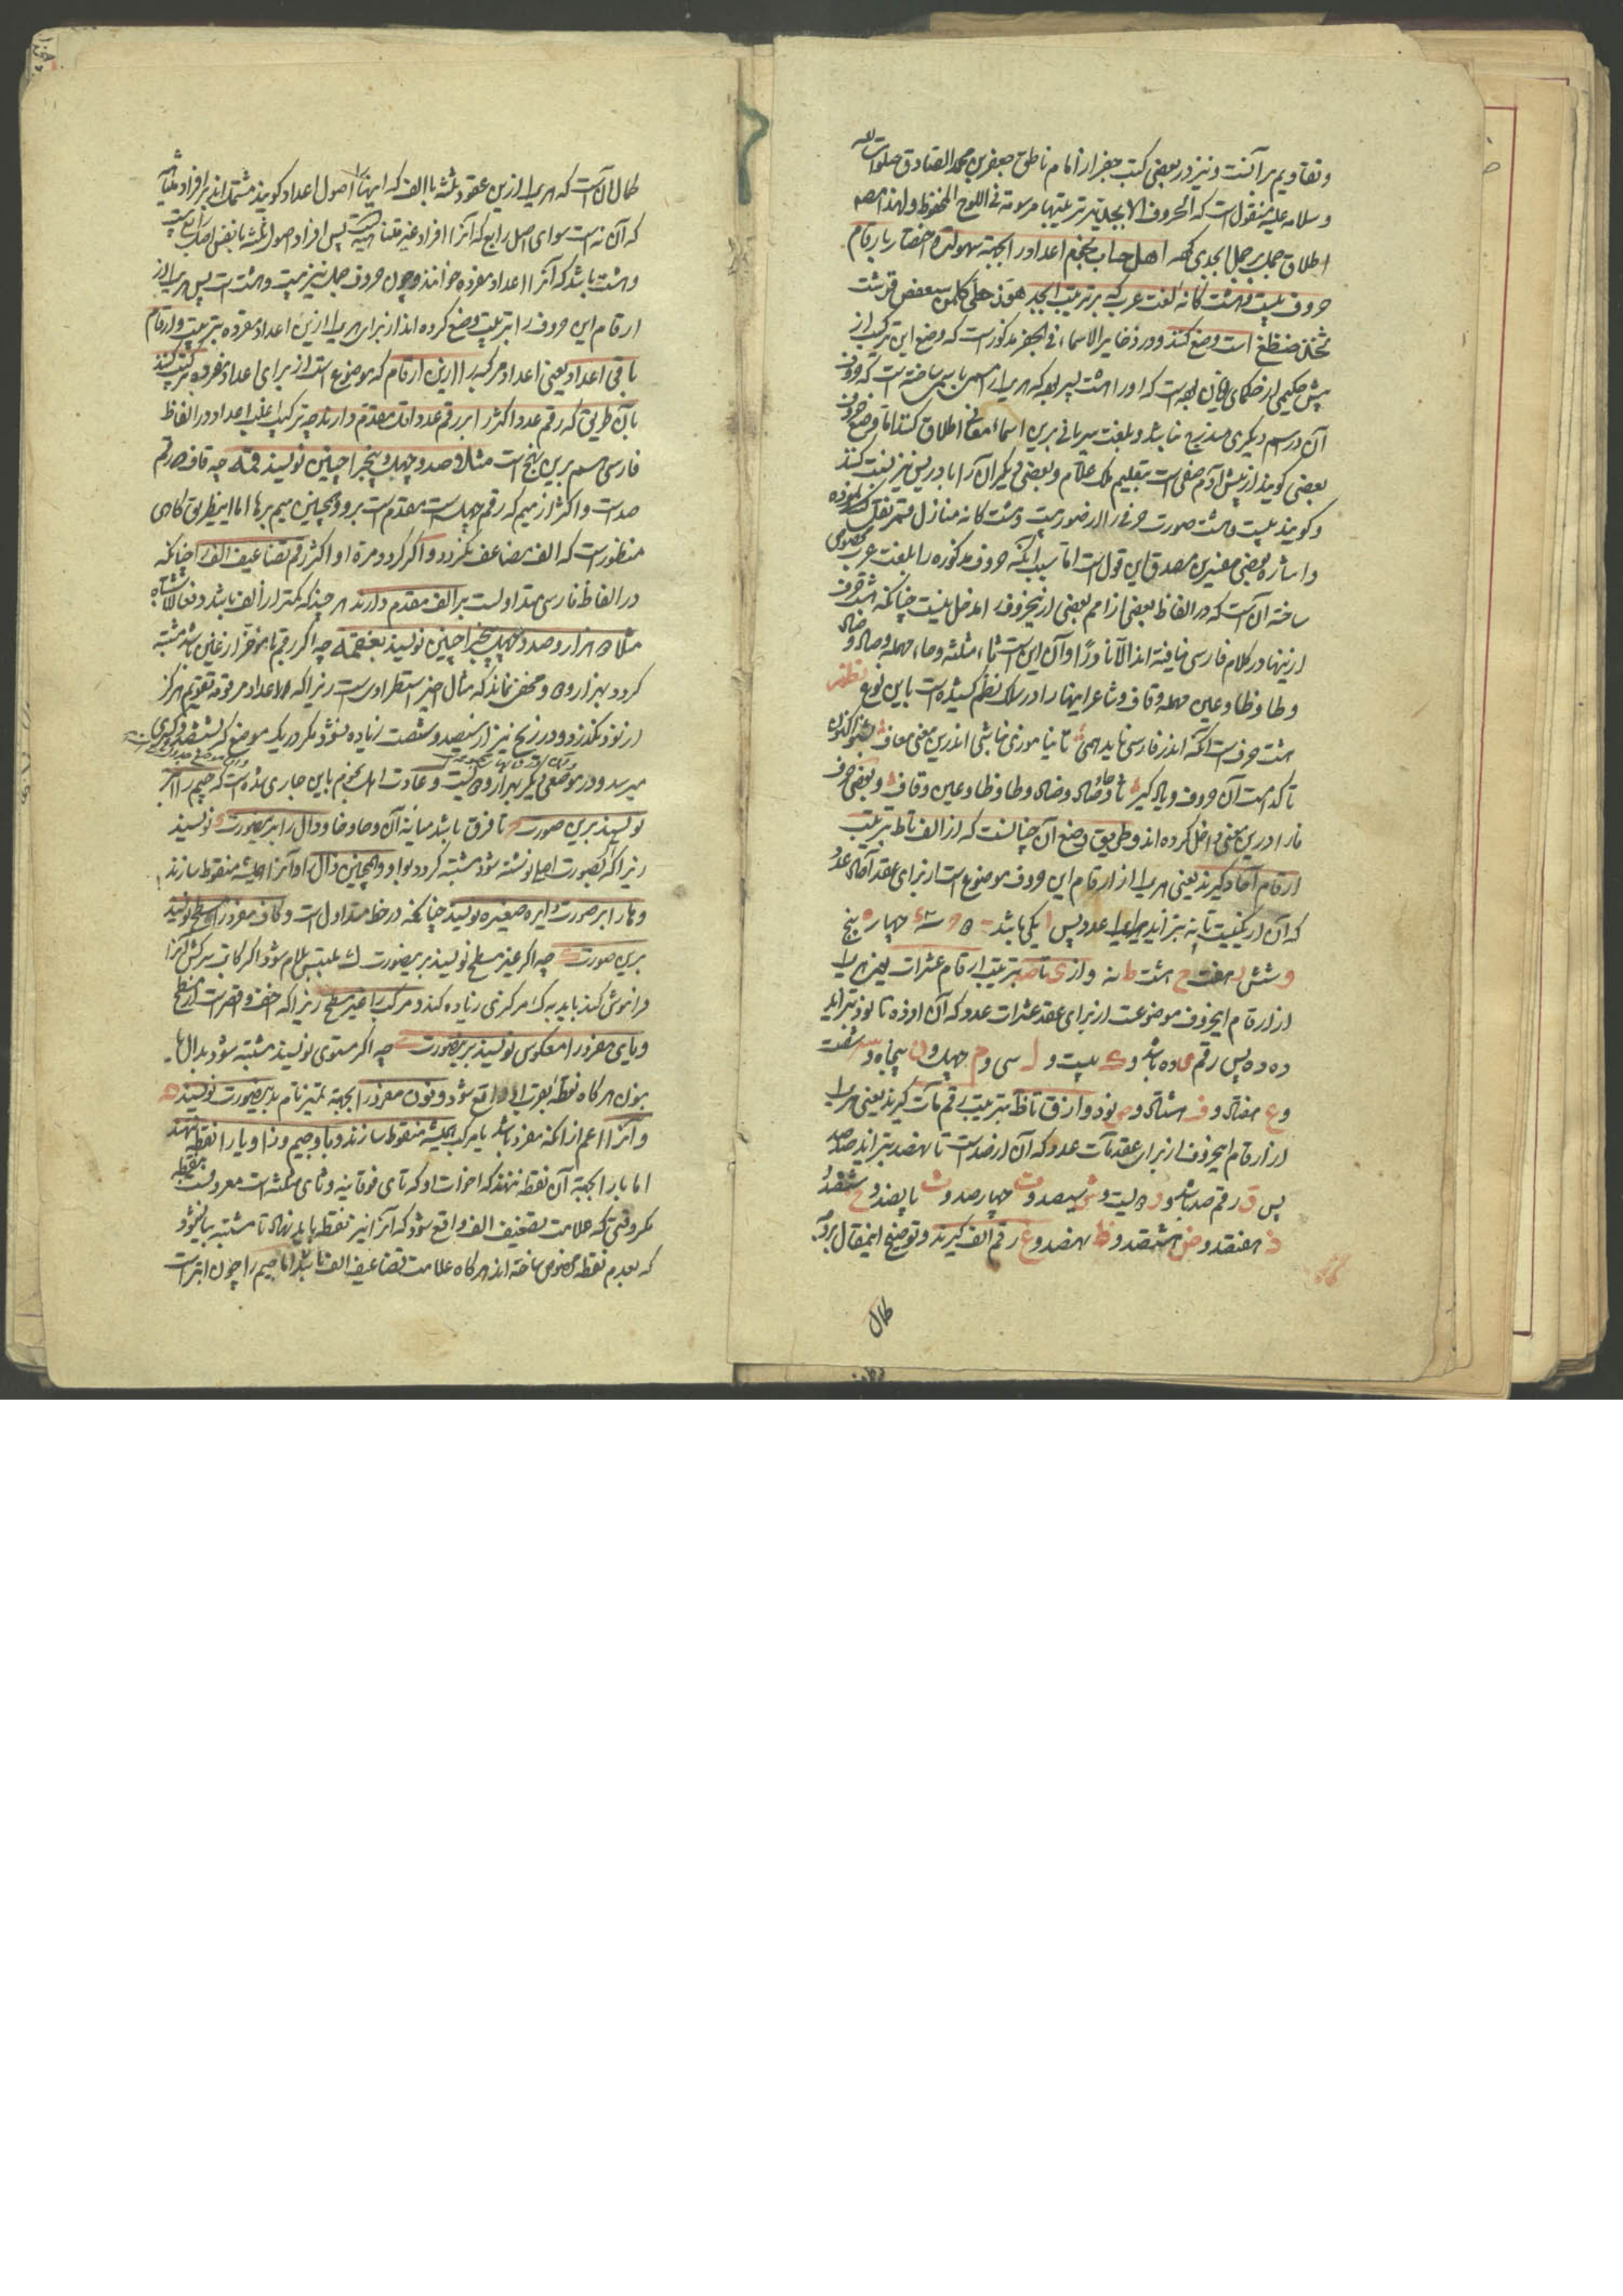 و تقاویم بر آنست و نیز در بعضی کتب جفر از امام ناطق جعفر بن محمد الصادق صلوات الله
و سلامه علیه منقول است که الحروف الابجدیة بترتیبها مرسومة فی اللوح المحفوظ و لهذا
اطلاق جمل بر جمل ابجدی کنند اهل حساب نجوم اعداد را بجهة سهولة و اختصار بارقام
حروف بیست و هشت کانه لغت عرب که بر ترتیب ابجد هوز حطی کلمن سعفص قرشت
ثخذ ضظغ است وضع کنند و در ذخایر الاسماء فی الجفر مذکور است که وضع این ترکیب از
پیش حکیمی از حکمای یونان بوده است که او را هشت پسر بوده که هر یک را اسمی ساخته است که حروف
آن در اسم دیگری مندرج نباشد و بلغت سریانی برین اسماء معانی اطلاق کنند اما وضع حروف
بعضی کویند از پیش آدم صفی است بتعلیم ملک علام و بعضی دیگر آن را بادریس نیز نسبت کنند
و کویند بیست و هشت صورت حروف را از صور بیست و هشت کانه منازل قمر نقل کرده
و اشاره بعضی مفسرین مصدق این قول است اما سبب آنکه حروف مذکوره را بلغت عرب مخصوص
ساخته آن است که در الفاظ بعضی از امم بعضی ازین حروف داخل نیست چنانکه هشت حرف
ازینها در کلام فارسی نیافته اند الا نادرا و آن این است ثاء مثلثه و حاء مهمله و صاد و ضاد
و طا و ظا و عین مهمله و قاف و شاعر اینها را در سلک نظم کشیده است باین نوع نظم
هشت حرفست آنکه اندر فارسی ناید همی تا نیاموزی نباشی اندرین معنی معاف بشنو اکنون
تا کدامست آن حروف و یاد کیر ثا و حا و صاد و ضاد و طا و ظا و عین و قاف و بعضی حرف
فا را درین معنی داخل کرده اند و طریق وضع آن چنانست که از الف تا ط بترتیب
ارقام آحاد کیرند یعنی هر یک از ارقام این حروف موضوع است از برای عقد آحاد عدد
که آن از یکیست تا نه بتزاید یک یک عدد پس ا یکی باشد ب دو ج سه د چهار ه پنج
و شش ز هفت ح هشت ط نه و از ی تا ص بترتیب ارقام عشرات یعنی هر یک
از ارقام این حروف موضوعست از برای عقد عشرات عدد که آن از ده تا نود بتزاید
ده ده پس رقم ی ده باشد و ک بیست و ل سی و م چهل و ن پنجاه و س شصت
و ع هفتاد و ف هشتاد و ص نود و از ق تا ظ بترتیب رقم مآت کیرند یعنی هر یک
از ارقام این حروف از برای عقد مآت عدد که آن از صد است تا نهصد بتزاید صد صد
پس ق رقم صد باشد و ر دویست و ش سیصد و ت چهارصد و ث پانصد و خ ششصد
ذ هفتصد و ض هشتصد و ظ نهصد و غ رقم الف کیرند و توضیح این مقال بر وجه
کمال
کمال آن است که هر یک ازین عقود ثلثه با الف که اینها را اصول اعداد کویند مشتمل اند بر افراد متناهیه
که آن نه است سوای اصل رابع که آنرا افراد غیر متناهیه است پس افراد اصول ثلثه با نفس اصل رابع بیست
و هشت باشد که آنرا اعداد مفرده خوانند و چون حروف جمل نیز بیست و هشت است پس هر یک از
ارقام این حروف را بترتیب وضع کرده اند از برای هر یک ازین اعداد مفرده بترتیب و ارقام
باقی اعداد یعنی اعداد مرکبه را ازین ارقام که موضوع است از برای اعداد مفرده ترکیب کنند
بآن طریق که رقم عدد اکثر را بر رقم عدد اقل مقدم دارند چه ترکیب اغلب اعداد در الفاظ
فارسی هم برین نهج است مثلا صد و چهل و پنج را چنین نویسند قمه چه قاف که رقم
صد است و اکثر از میم که رقم چهل است مقدم است برو و همچنین میم بر ها اما این طریق کاهی
منظور است که الف مضاعف نکردد و اکر کردد مرة او اکثر رقم تضاعیف الف را چنانکه
در الفاظ فارسی متداولست بر الف مقدم دارند هر چند که کمتر از الف باشد دفعا للاشتباه
مثلا دو هزار و صد و چهل و پنج را چنین نویسند بغقمه چه اکر رقم با مؤخر از غین باشد مشتبه
کردد بهزار و دو و مخفی نماند که مثال خیر استطرادیست زیرا که اعداد مرقومه تقویم هرکز
از نود نکذرد و در زیج نیز از سیصد و شصت زیاده نشود مکر در یک موضع که بششصد و کسری
میرسد و در موضعی دیگر بهزار و دویست و عادت اهل نجوم باین جاری شده است که جیم را ابتر
نویسند برین صورت تا فرق باشد میانه آن و حا و خا و دال را بدین صورت نویسند
زیرا که اکر بصورت اصل نوشته شود مشتبه کردد بواو و همچنین ذال را و آنرا همیشه منقوط سازند
و ها را بر صورت دایره صغیره نویسند چنانکه در خط متداول است و کاف مفرد را مسطح نویسند
برین صورت چه اکر غیر مسطح نویسند برین صورت ک ملتبس بلام شود اکر کاتب سرکش آنرا
فراموش کند باید بر یک مرکزی زیاده کند و مرکب را غیر مسطح زیرا که اخف و اقصر است از مسطح
و یای مفرد را معکوس نویسند برین صورت چه اکر مستوی نویسند مشتبه شود بدال یا
بنون هرکاه نقطه بقرب او واقع شود و نون مفرد را بجهة تمیز تام بدین صورت نویسند
و آنرا اعم از آنکه مفرد باشد یا مرکب همیشه منقوط سازند و با و جیم و زا و یا را نقطه ننهند
اما با را بجهة آن نقطه ننهند که اخوات او که تای فوقانیه و ثای مثلثه است معروفست بنقطه
مکر وقتی که علامت تضعیف الف واقع شود که آنرا نیز نقطه باید نهاد تا مشتبه بیا نشود
که بعدم نقطه مخصوص ساخته اند هرکاه علامت تضاعیف الف باشد اما جیم را چون ابتر است